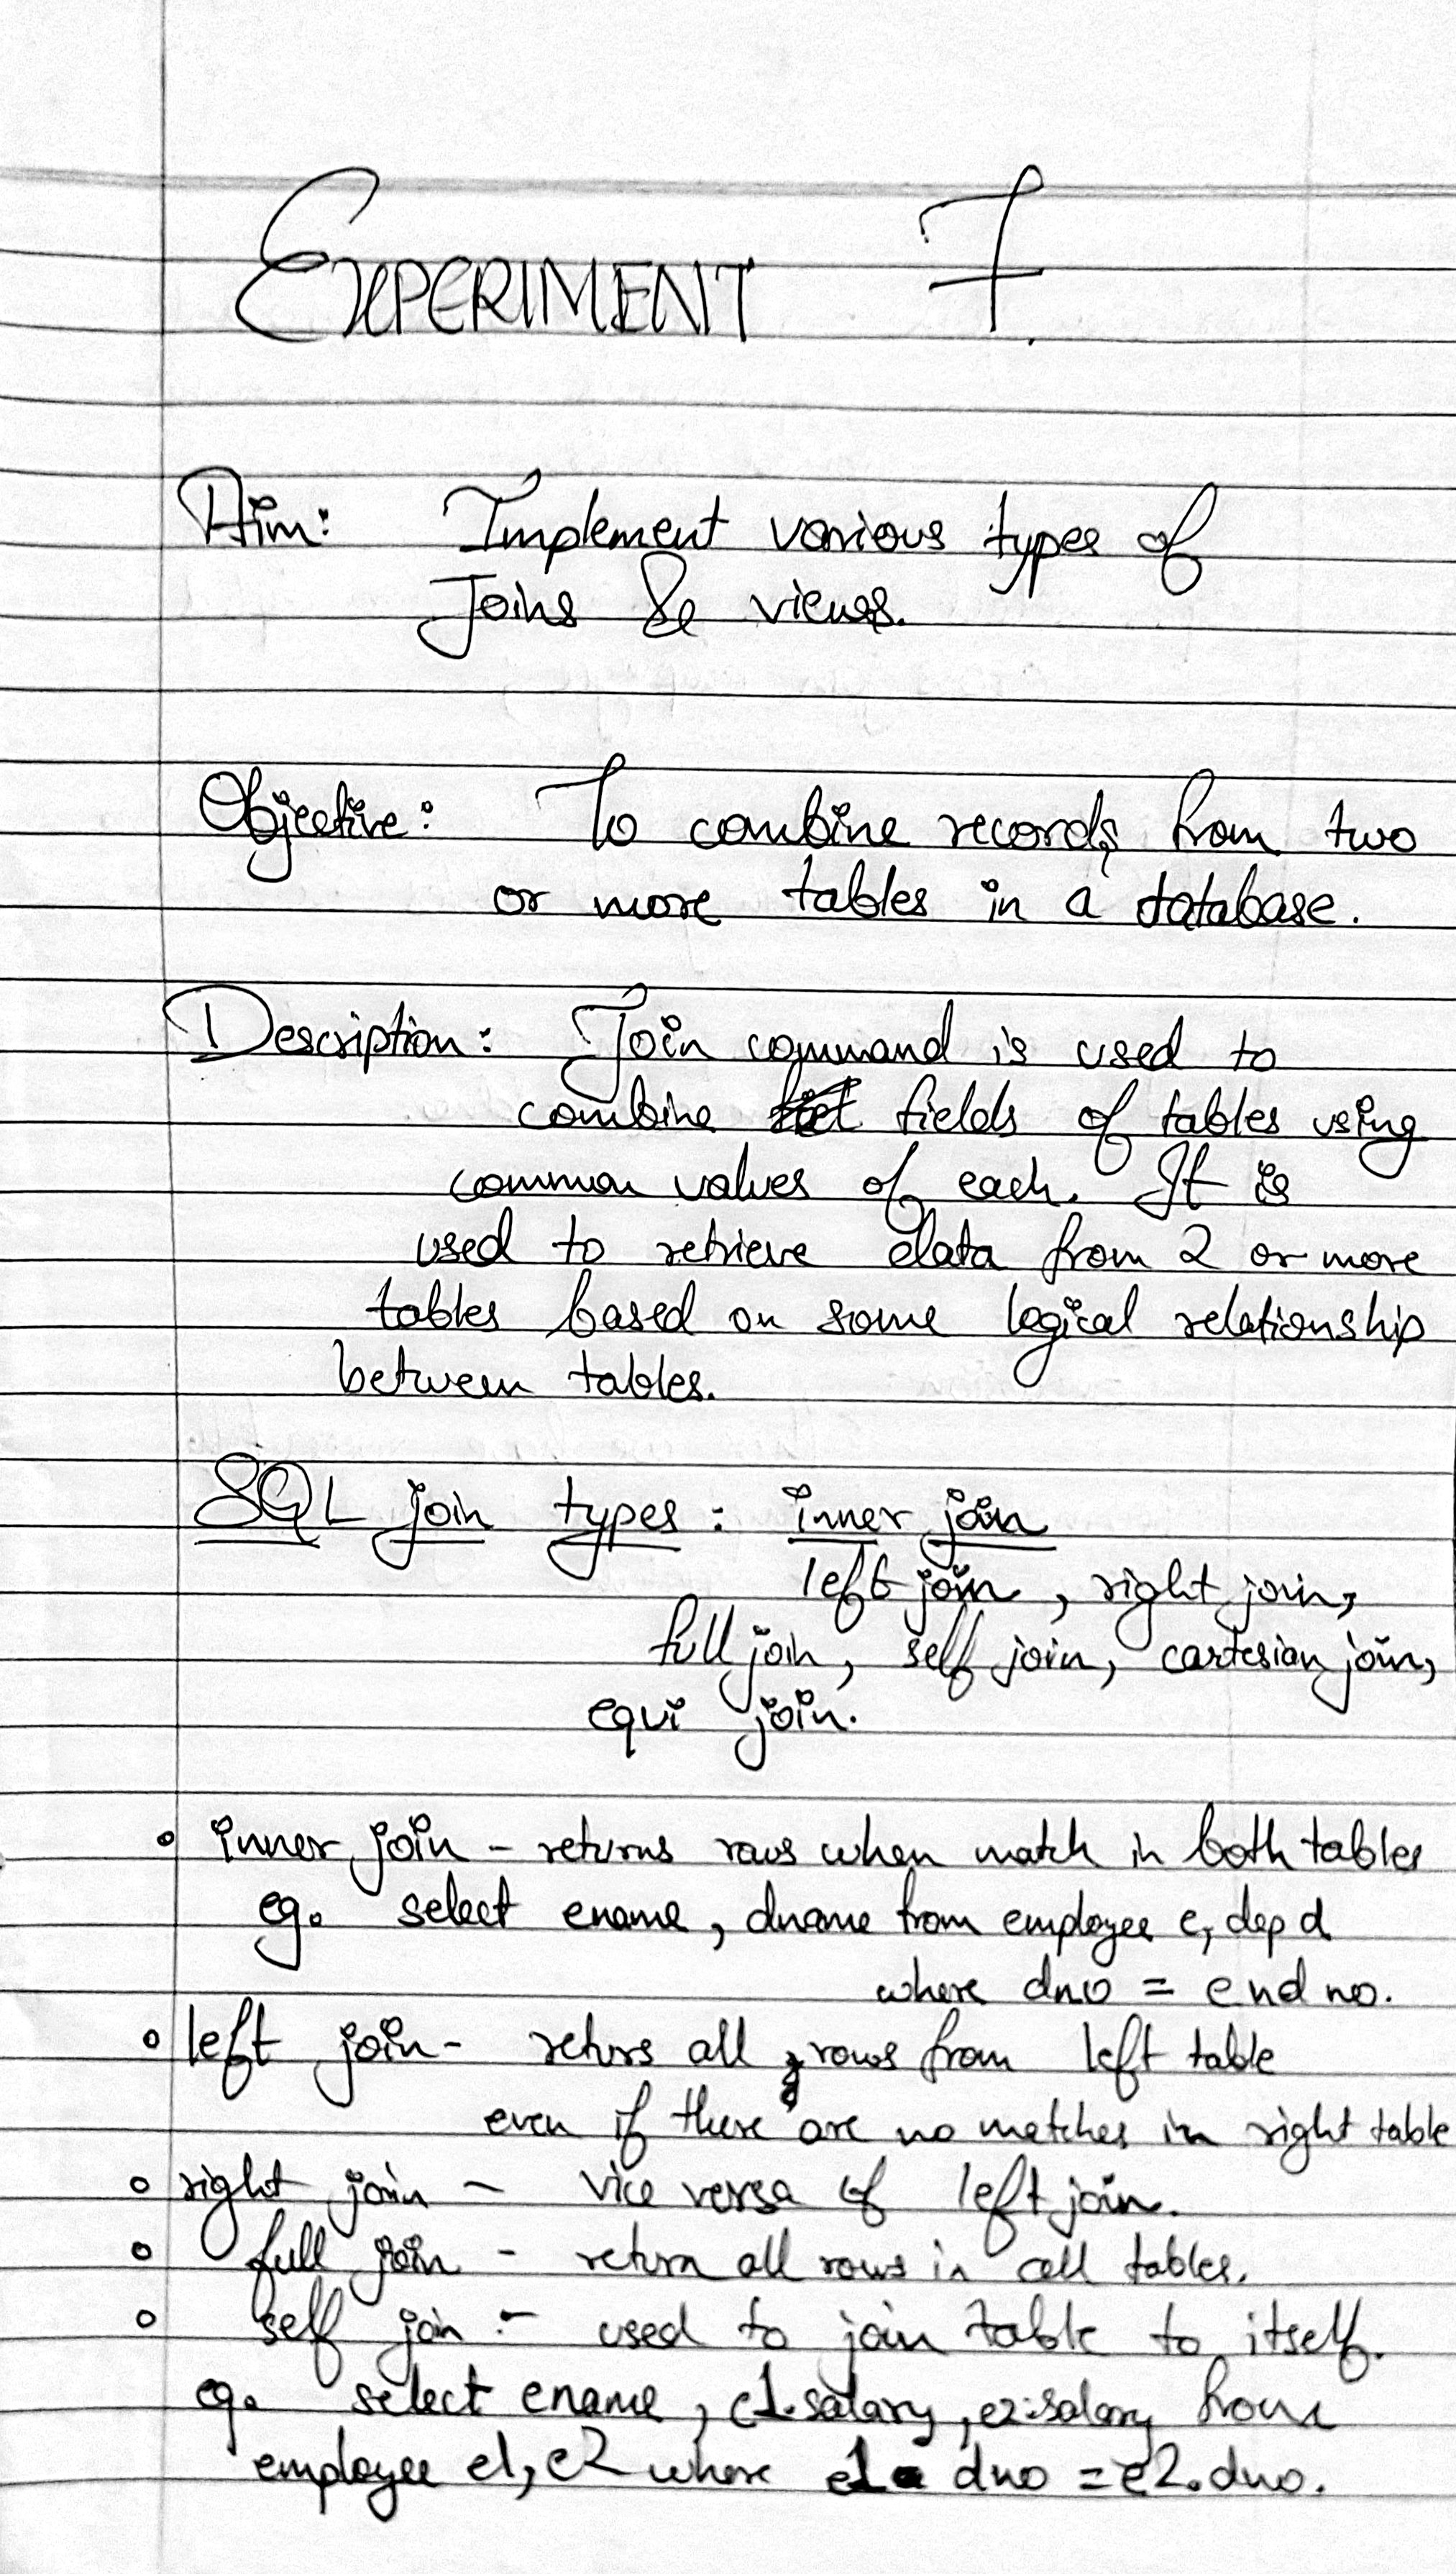 EXPERIMENT 7.
Aim: Implement various types of
Joins & views.
Objective: To combine records from two
or more tables in a database.
Description: Join command is used to
combine fields of tables using
common values of each. It is
used to retrieve data from 2 or more
tables based on some logical relationship
between tables.
SQL join types: inner join
left join, right join,
full join, self join, cartesian join,
equi join.
• inner join - returns rows when match in both tables
eg. select ename, dname from employee e, dep d
where dno = endno.
• left join - returs all rows from left table
even if there are no matches in right table
• right join - vice versa of left join.
• full join - return all rows in all tables.
• self join :- used to join table to itself.
eg. select ename, e1.salary, e2.salary from
employee e1, e2 where e1.dno = e2.dno.